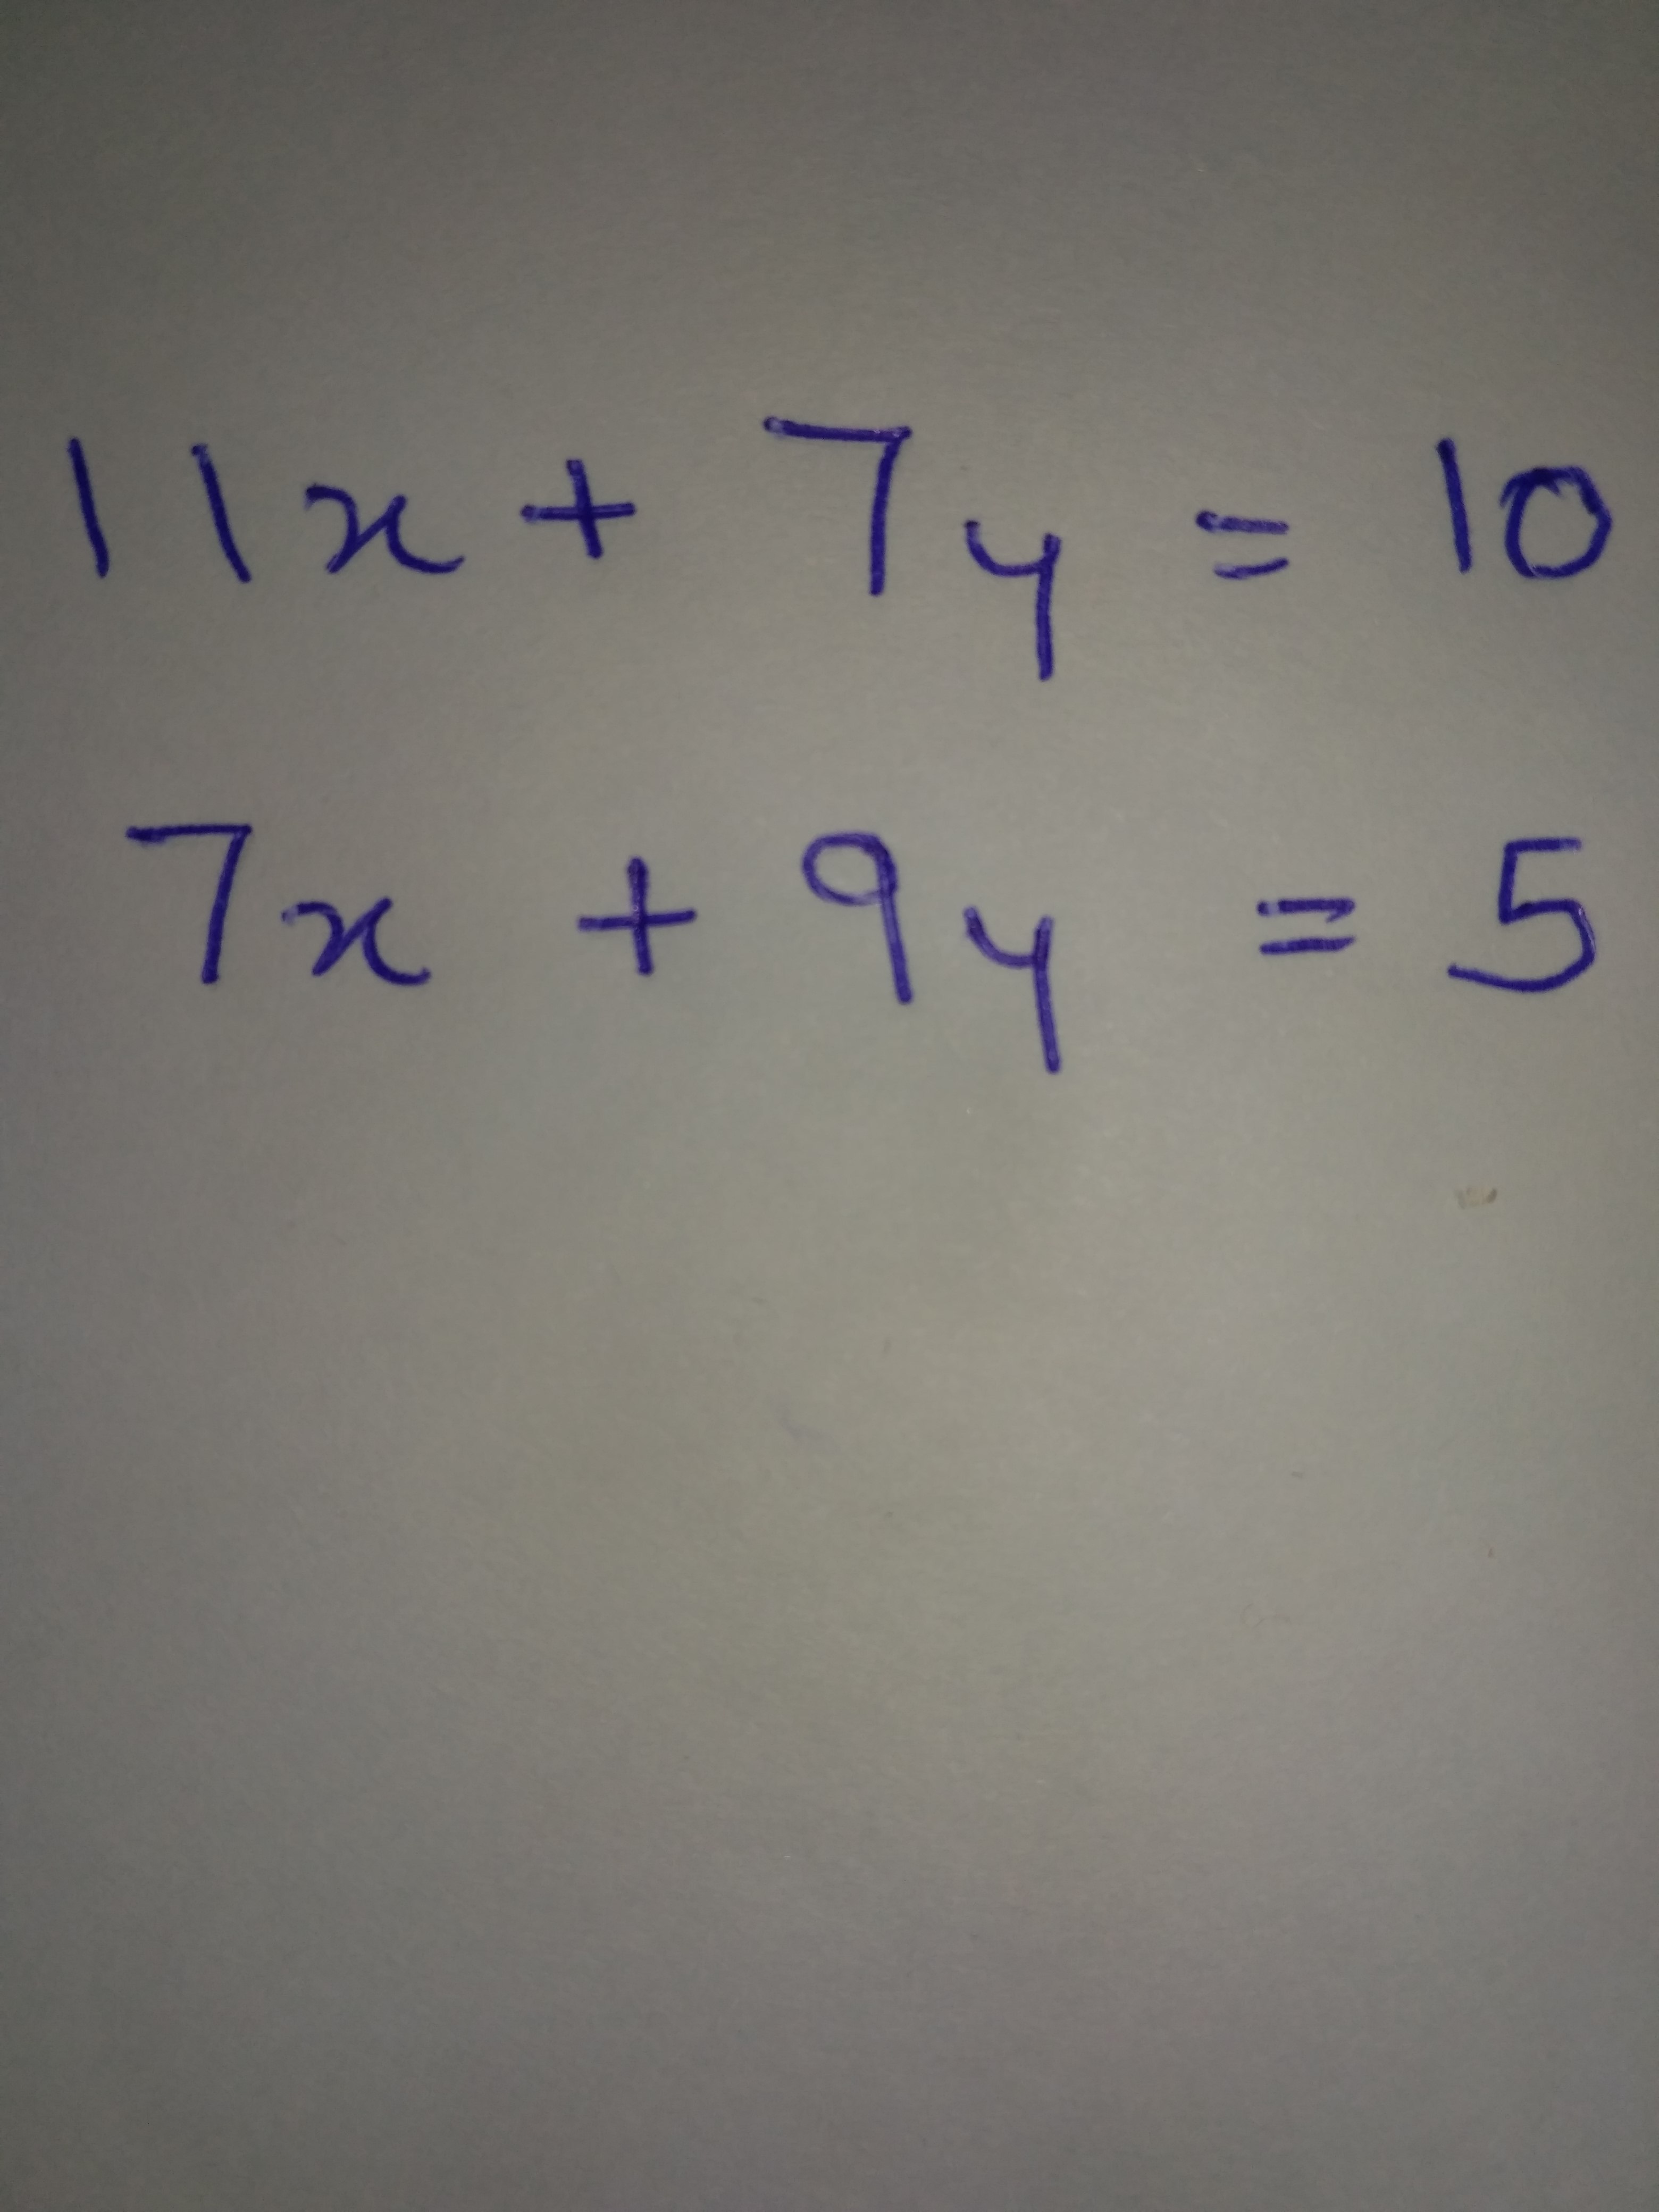 11x + 7y = 10
7x + 9y = 5